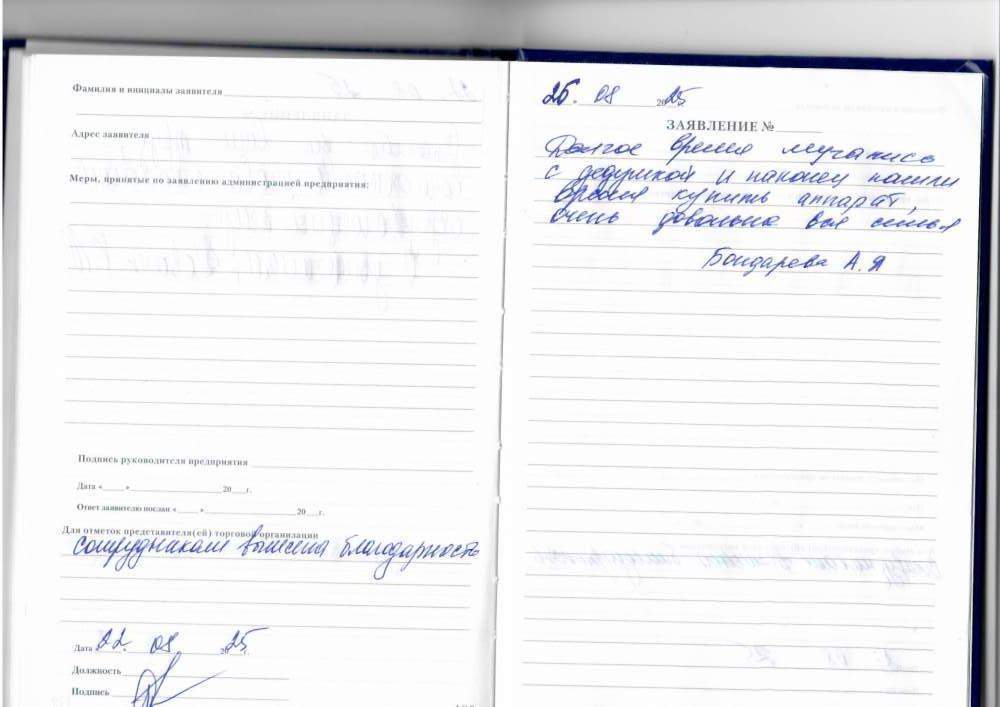 Фамилия и инициалы заявителя
Адрес заявителя
Меры, принятые по заявлению администрацией предприятия:
Подпись руководителя предприятия
Дата «____»____________20___г.
Ответ заявителю послан «____»____________20___г.
Для отметок представителя(ей) торговой организации
сотрудникам вынесена благодарность
Дата 22. 08. 2025
Должность
Подпись
25. 08 2025
ЗАЯВЛЕНИЕ №
Долгое время мучались
с дедушкой и наконец нашли
время купить аппарат,
очень довольна вся семья
Бондарева А. Я